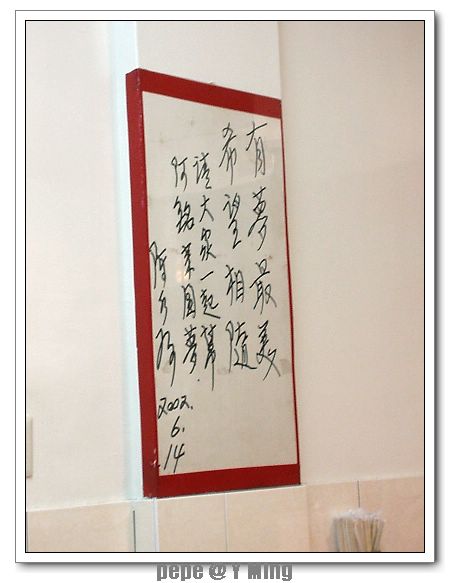 有夢最美
希望相隨
請大家一起幫
阿銘來圓夢.
陳水扁
2002.
6.
14
pepe @ Y Ming